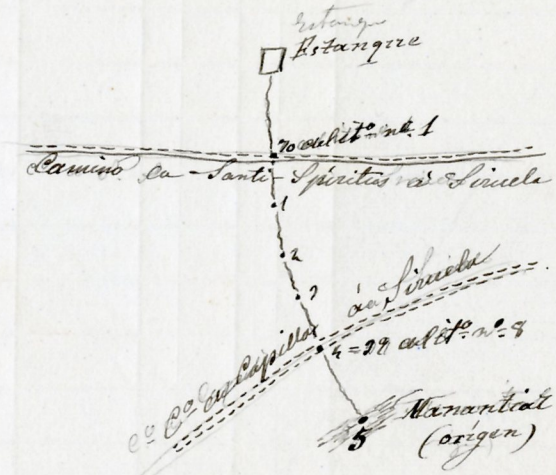 Estanque
Estanque
70 del itº nº 1
Camino de Santi-Spiritus á Siruela
1
2
3
Cº de Capilla á Siruela
4=29 del itº nº 8
5
Manantial
(origen)